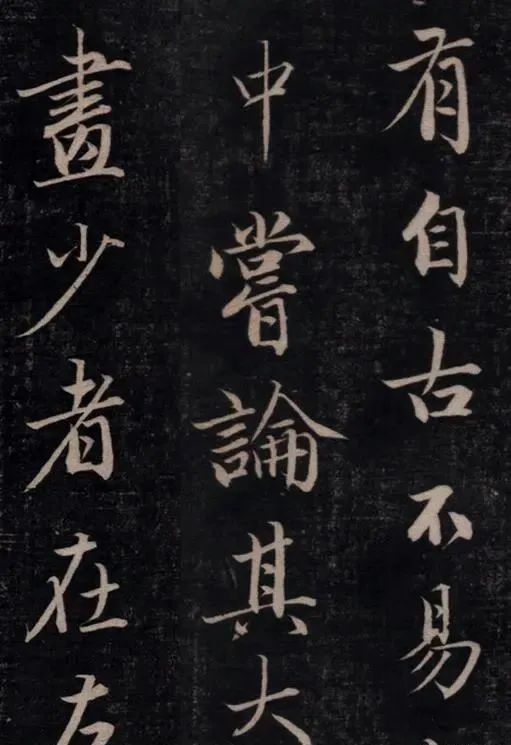 有自古不易
中嘗論其大
畫少者在左